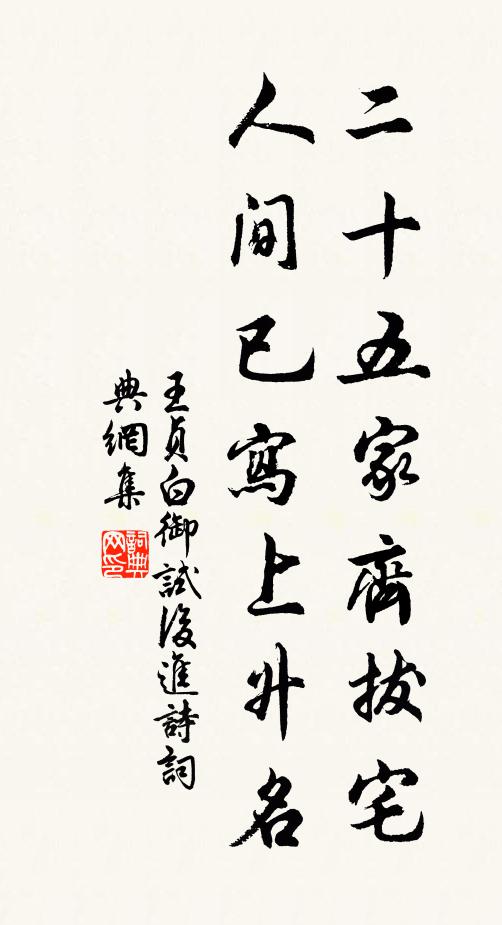 二十五家齊拔宅
人间已寫上升名
王貞白御試後進詩詞
典網集
詞典
网印